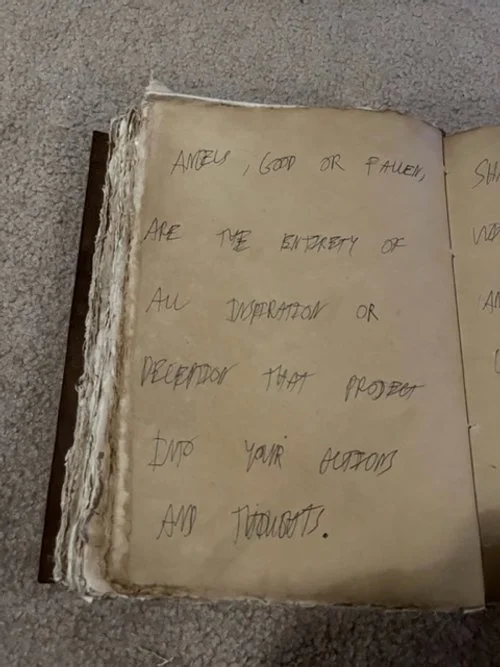 ANGELS, GOOD OR FALLEN,
ARE THE ENTIRETY OF
ALL INSPIRATION OR
DECEPTION THAT PROJECT
INTO YOUR ACTIONS
AND THOUGHTS.